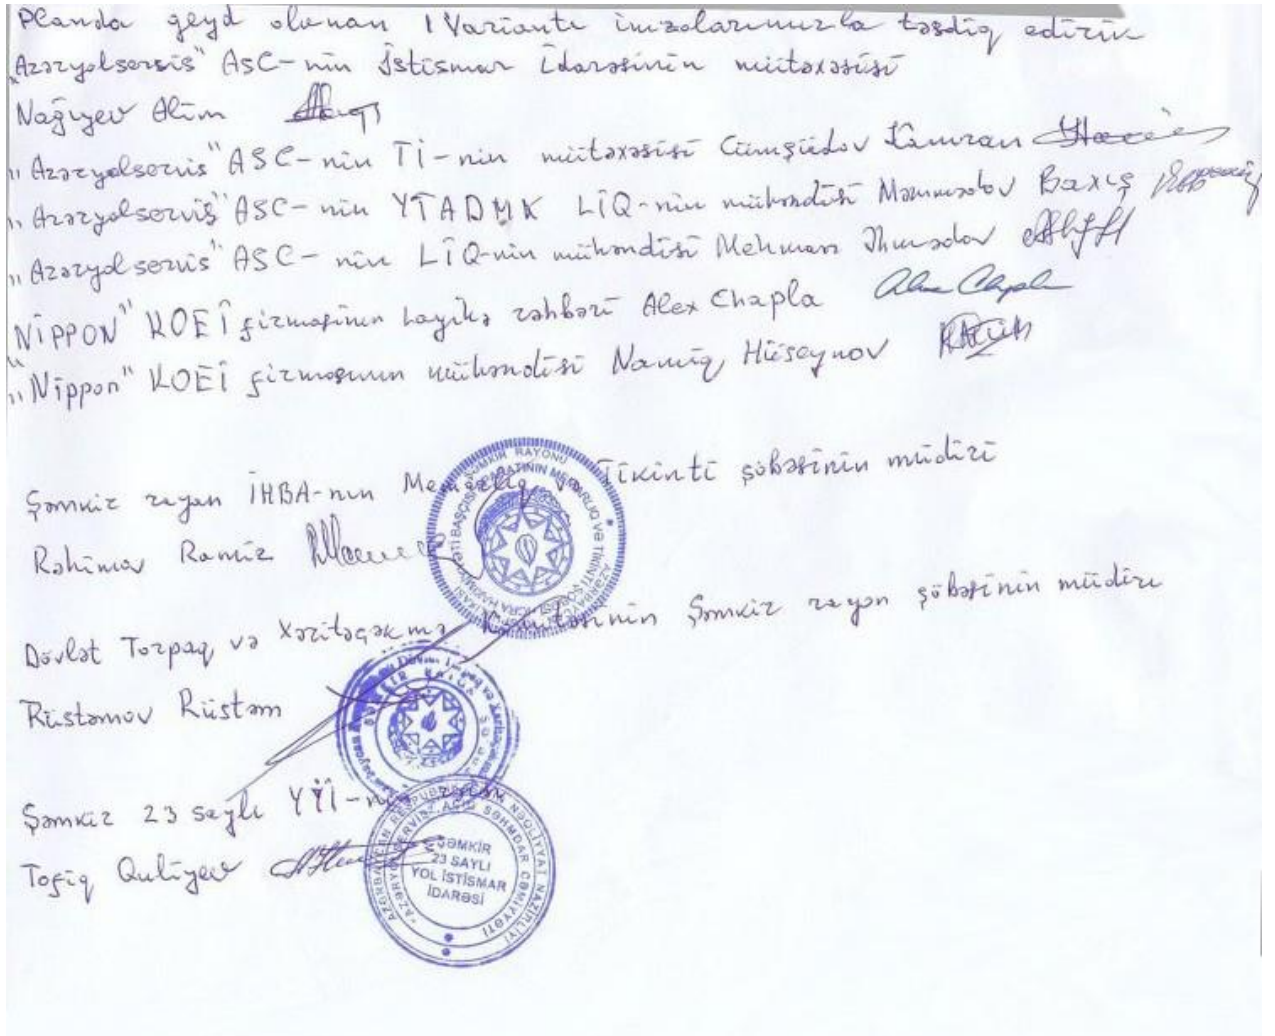 Planda qeyd olunan 1 Variantı imzalarımızla təsdiq edirik
"Azəryolservis" ASC-nin İstismar İdarəsinin mütəxəsisi
Nağıyev Alim
"Azəryolservis" ASC-nin Tİ-nin mütəxəsisi Cümşüdov Kamran
"Azəryolservis" ASC-nin YTADMK LİQ-nin mühəndisi Məmmədov Baxış
"Azəryolservis" ASC-nin LİQ-nin mühəndisi Mehman Əhmədov
"NİPPON" KOEİ firmasının layihə rəhbəri Alex Chapla
"Nippon" KOEİ firmasının mühəndisi Namiq Hüseynov
Şəmkir rayon İHBA-nın Memarlıq və Tikinti şöbəsinin müdiri
Rəhimov Ramiz
ŞƏMKİR RAYONU
Dövlət Torpaq və Xəritəçəkmə Komitəsinin Şəmkir rayon şöbəsinin müdiri
Rüstəmov Rüstəm
Şəmkir 23 saylı YYİ-nin rəisi
Tofiq Quliyev
AZƏRBAYCAN RESPUBLİKASI NƏQLİYYAT NAZİRLİYİ
"AZƏRYOLSERVİS" AÇIQ SƏHMDAR CƏMİYYƏTİ
ŞƏMKİR
23 SAYLI
YOL İSTİSMAR
İDARƏSİ